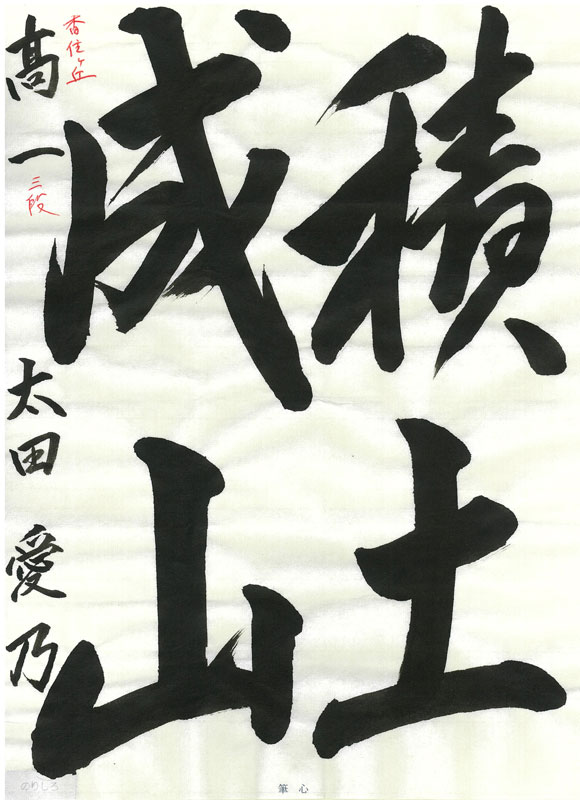 積土
成山
香住ヶ丘
高一 三段 太田愛乃
のりしろ
筆心